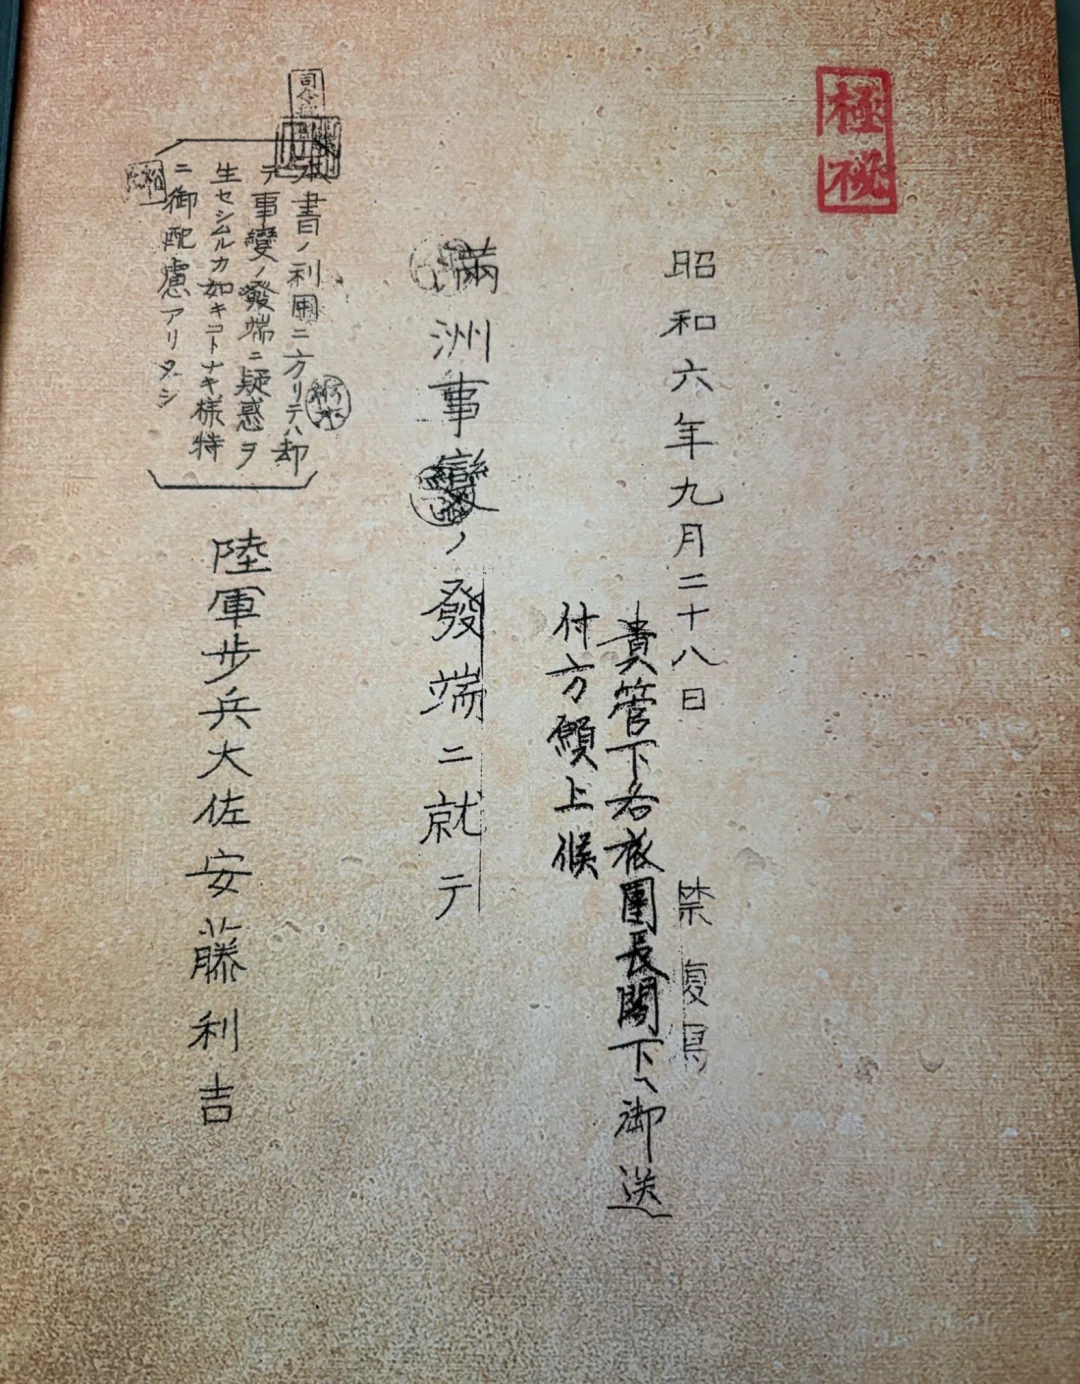 極秘
昭和六年九月二十八日
禁復写
貴管下各旅團長閣下ヘ御送
付方願上候
滿洲事變ノ發端ニ就テ
本書ノ利用ニ方リテハ却
テ事變ノ發端ニ疑惑ヲ
生セシムルカ如キコトナキ様特
ニ御配慮アリタシ
陸軍步兵大佐安藤利吉